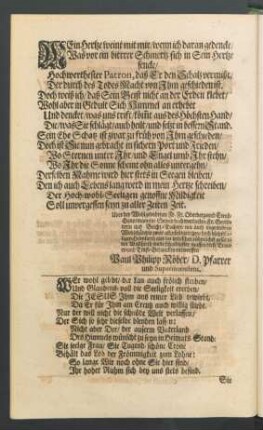 MEin Hertze weint mit mir, wenn ich daran gedencke,
Was vor ein bittrer Schmertz sich in Sein Hertze
sencke,
Hochwerthester Patron, daß Er den Schatz vermißt,
Der durch des Todes Macht von Ihm geschieden ist.
Doch weiß ich, daß Sein Geist nicht an der Erden klebet,
Wohl aber in Gedult Sich Himmel an erhebet
Und dencket, was uns trifft, kömt aus des Höchsten Hand,
Die, was Sie schlägt, auch heilt, und setzt in bessern Stand.
Sein Ehe-Schatz ist zwar zu früh von Ihm geschieden,
Doch ist Sie nun gebracht in sichern Port und Frieden,
Wo Sternen unter Ihr, und Engel umb Ihr stehn,
Wo Ihr die Sonne scheint ohn alles untergehn,
Derselben Nahme wird hier stets in Seegen bleiben,
Den ich auch Lebenslang werd in mein Hertze schreiben,
Der Hoch-wohl-Seeligen genossne Güldigkeit
Soll unvergessen seyn zu aller Zeiten Zeit.
Paul Philipp Röber, D. Pfarrer
und Superintendent.
WEr wohl gelebt, der kan auch frölich sterben,
Und Glaubens-voll die Seeligkeit ererben,
Die JESUS Ihm aus treuer Lieb erwirbt,
Da Er für Ihm am Creutz auch willig stirbt.
Nur der will nicht die schnöde Welt verlassen,
Der Sich so sehr dieselbe bleiben laß'n:
Nicht aber Der, der ausserm Vaterland
Des Himmels wünscht zu seyn in Heimats-Stand.
Die seelge Frau, Die Tugend-schöne Crone
Behält das Lob der Frömmigkeit zum Lohne:
So lange Wir noch ohne Sie hier sind,
Ihr hoher Ruhm sich bey uns stets befind.
Sie